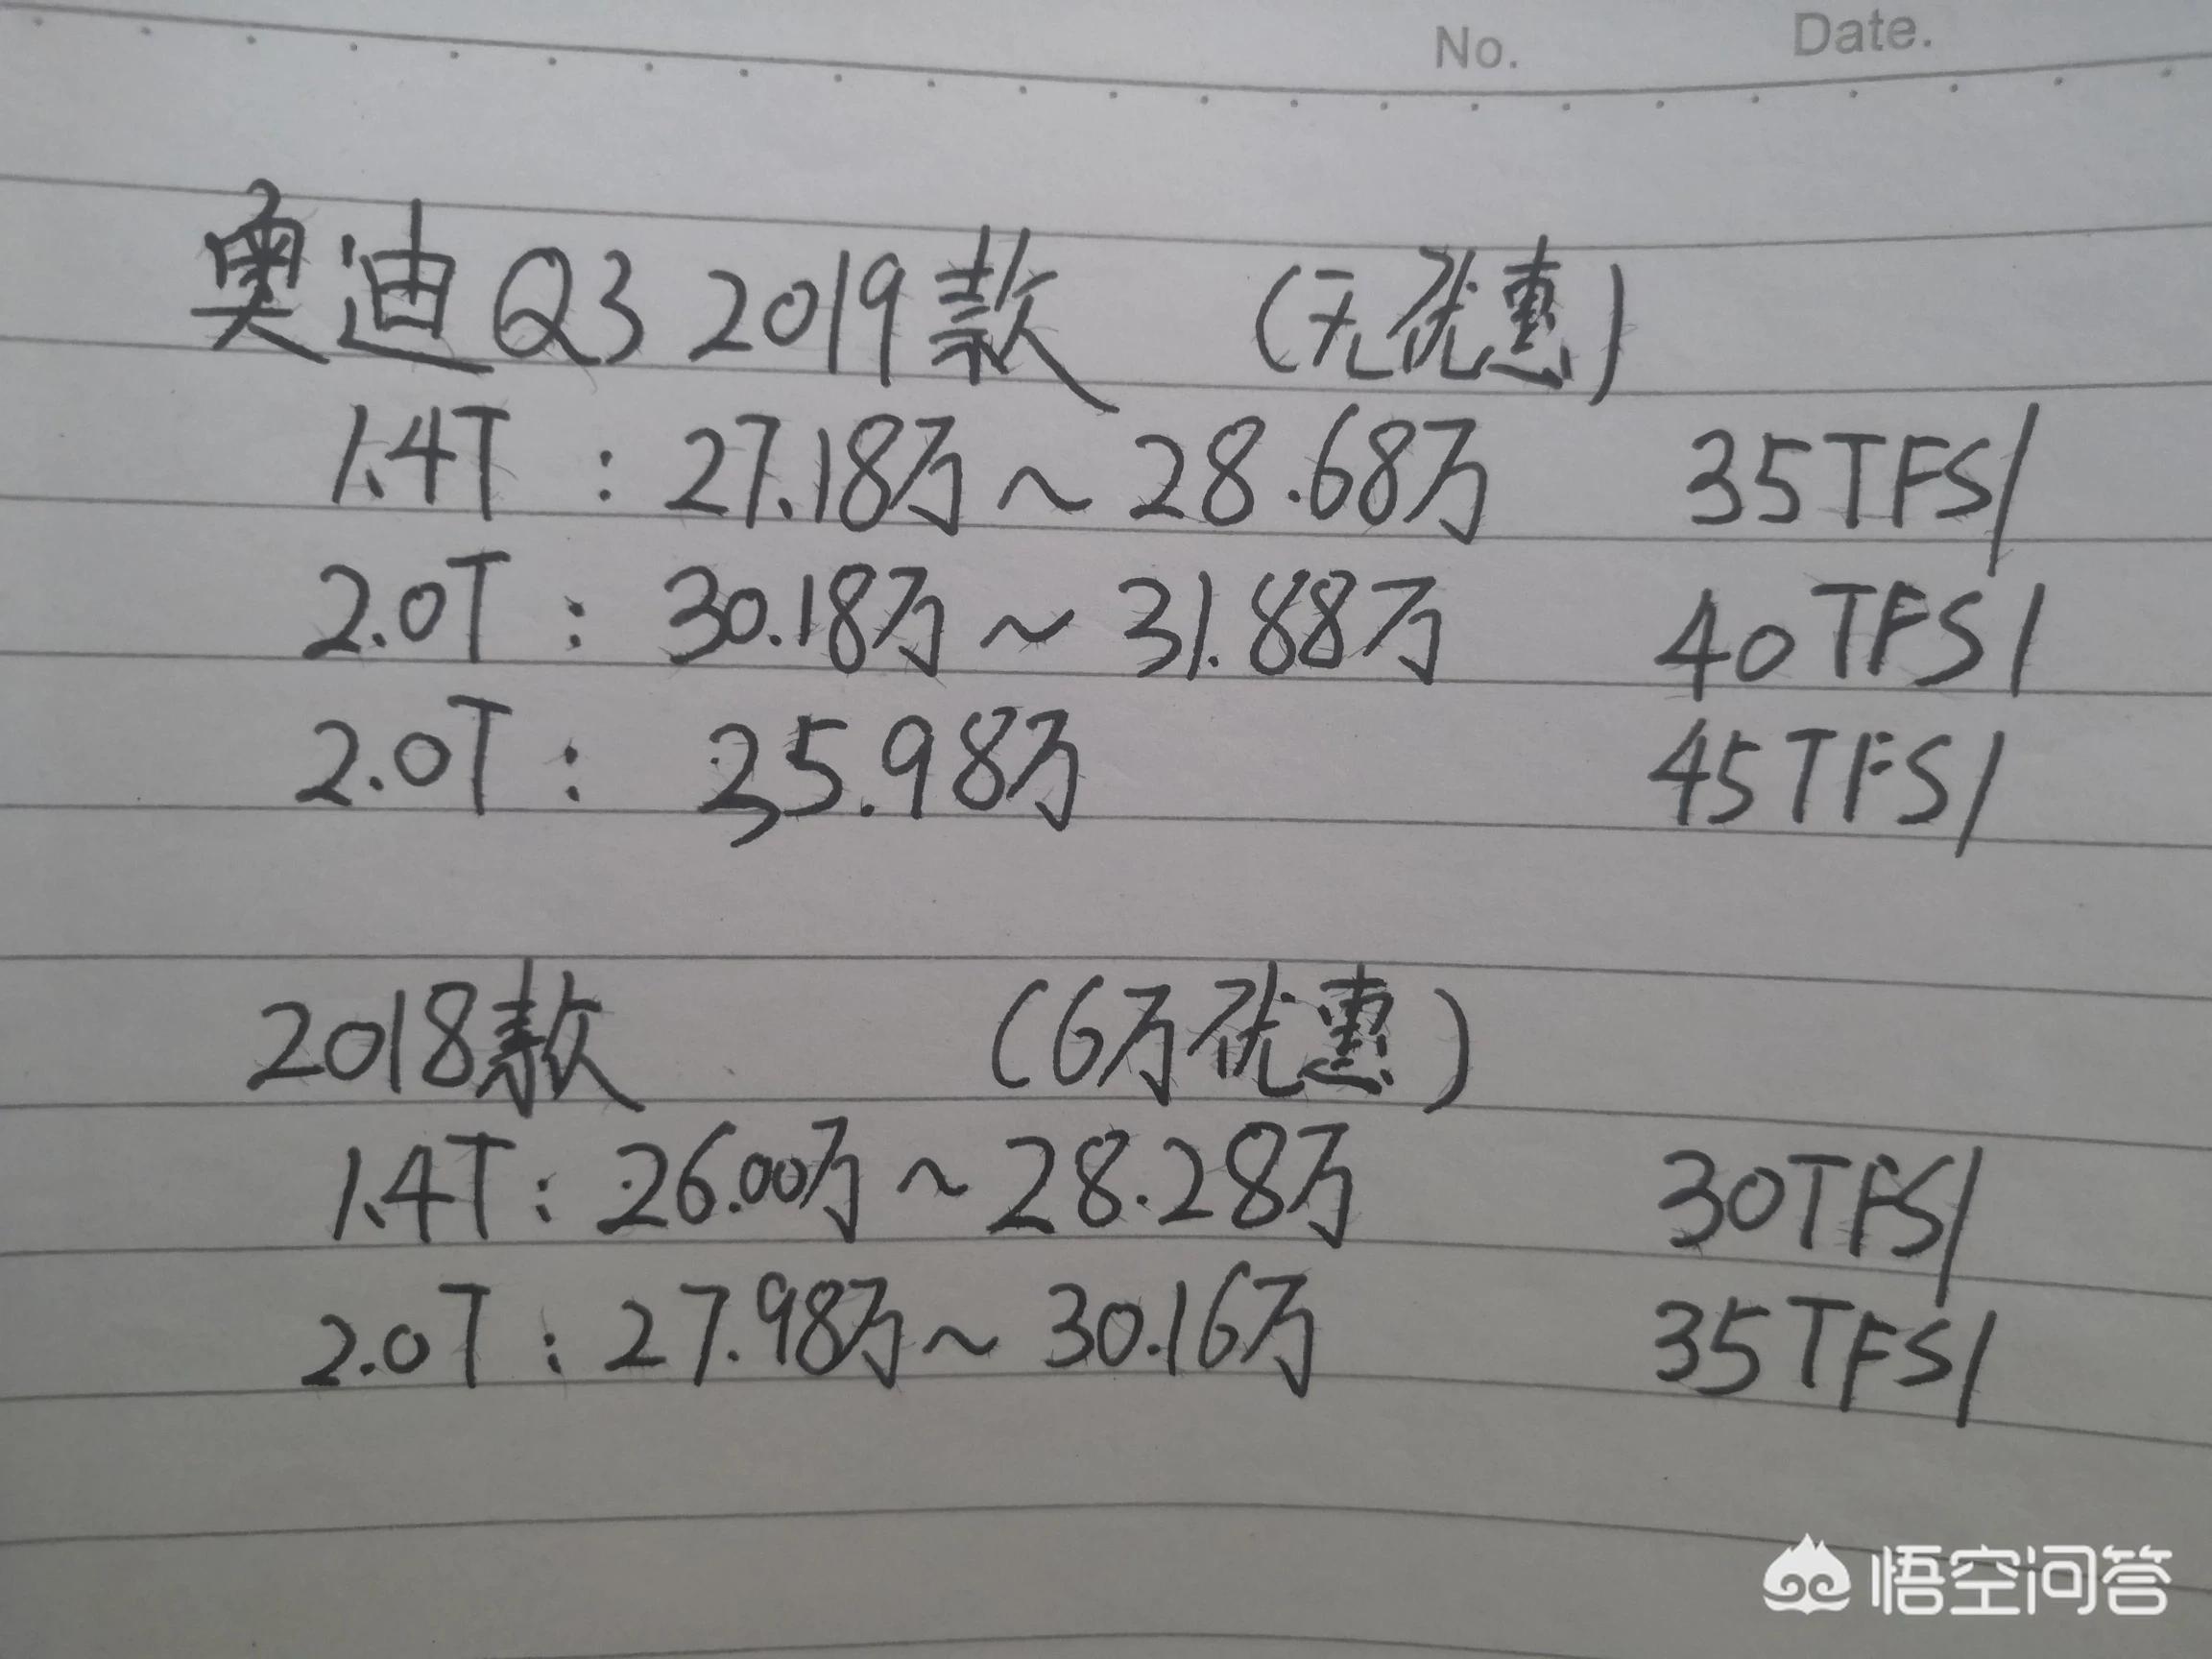 No. Date.
奥迪Q3 2019款 (无优惠)
1.4T : 27.18万~28.68万 35TFSI
2.0T : 30.18万~31.88万 40TFSI
2.0T : 35.98万 45TFSI
2018款 (6万优惠)
1.4T : 26.00万~28.28万 30TFSI
2.0T : 27.98万~30.16万 35TFSI
悟空问答